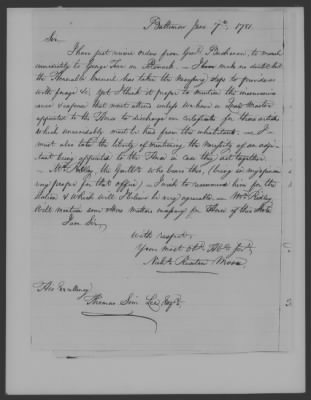 Baltimore June 7th, 1781.
Sir,
I have just received orders from Genl. Buchanan, to march
immediately to George Town on Potomack. — I have no doubt but
the Honorable Council has taken the necessary steps to provide us
with forage &c. yet I think it proper to mention the inconveni
ence & expence that must attend unless we have a Quar. Master
appointed to the Horse to discharge in certificates for those articles
which unavoidably must be had from the inhabitants. — I
must also take the liberty of mentioning the necessity of an adju
tant being appointed to the Horse in case they act together
— Mr. Ridley, the Gentleman who bears this, (being in my opinion
very proper for that office,) I wish to recommend him for the
Station & which will I believe be very agreeable. — Mr. Ridley
Will mention some others matters necessary for the Horse of this State
I am Sir,
With respect,
Your most Obt. Hble Sert.
Nichs. Ruxton Moore
His Excellency
Thomas Sim Lee Esqr.